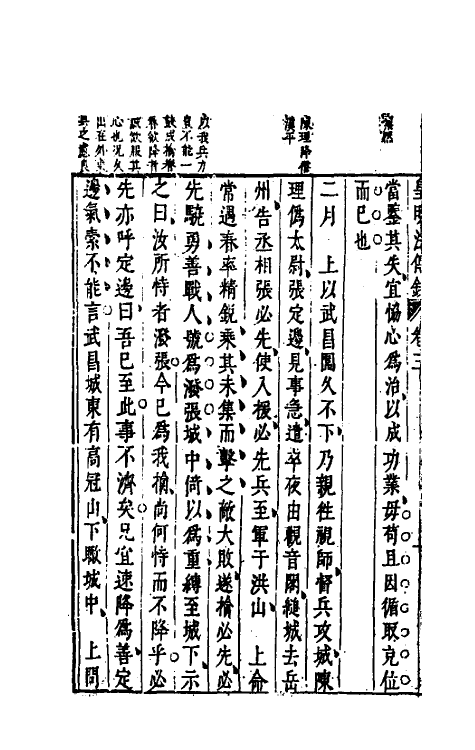 皇明法傳錄 卷三
當鑒其失宜恊心爲治以成功業毋苟且因循取充位
而巳也
二月　上以武昌圍久不下乃親徃視師督兵攻城陳
理僞太尉張定邊見事急遣卒夜由觀音閣縋城去岳
州告丞相張必先使入援必先兵至軍于洪山　上命
常遇春率精銳乘其未集而擊之敵大敗遂擒必先必
先驍勇善戰人號爲潑張城中倚以爲重縛至城下示
之曰汝所恃者潑張今巳爲我擒尚何恃而不降乎必
先亦呼定邊曰吾巳至此事不濟矣兄宜速降爲善定
邊氣索不能言武昌城東有高冠山下瞰城中　上問
陳理降僞
漢平